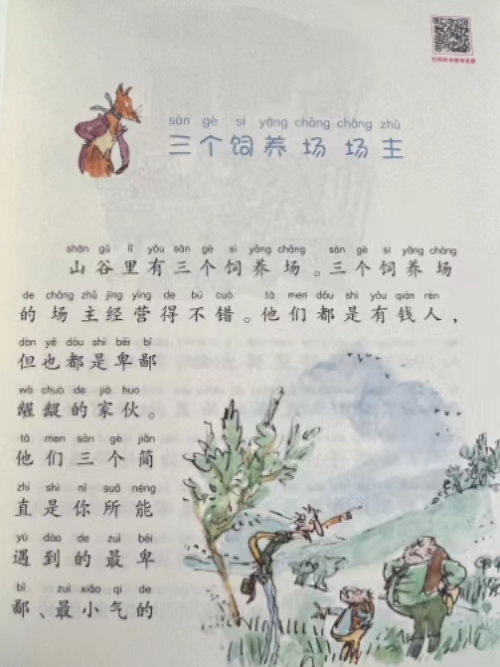 sān gè sì yǎng chǎng chǎng zhǔ
三个饲养场场主
shān gǔ lǐ yǒu sān gè sì yǎng chǎng sān gè sì yǎng chǎng
山谷里有三个饲养场。三个饲养场
de chǎng zhǔ jīng yíng de bú cuò tā men dōu shì yǒu qián rén
的场主经营得不错。他们都是有钱人，
dàn yě dōu shì bēi bǐ
但也都是卑鄙
wò chuò de jiā huo
龌龊的家伙。
tā men sān gè jiǎn
他们三个简
zhí shì nǐ suǒ néng
直是你所能
yù dào de zuì bēi
遇到的最卑
bǐ zuì xiǎo qì de
鄙、最小气的